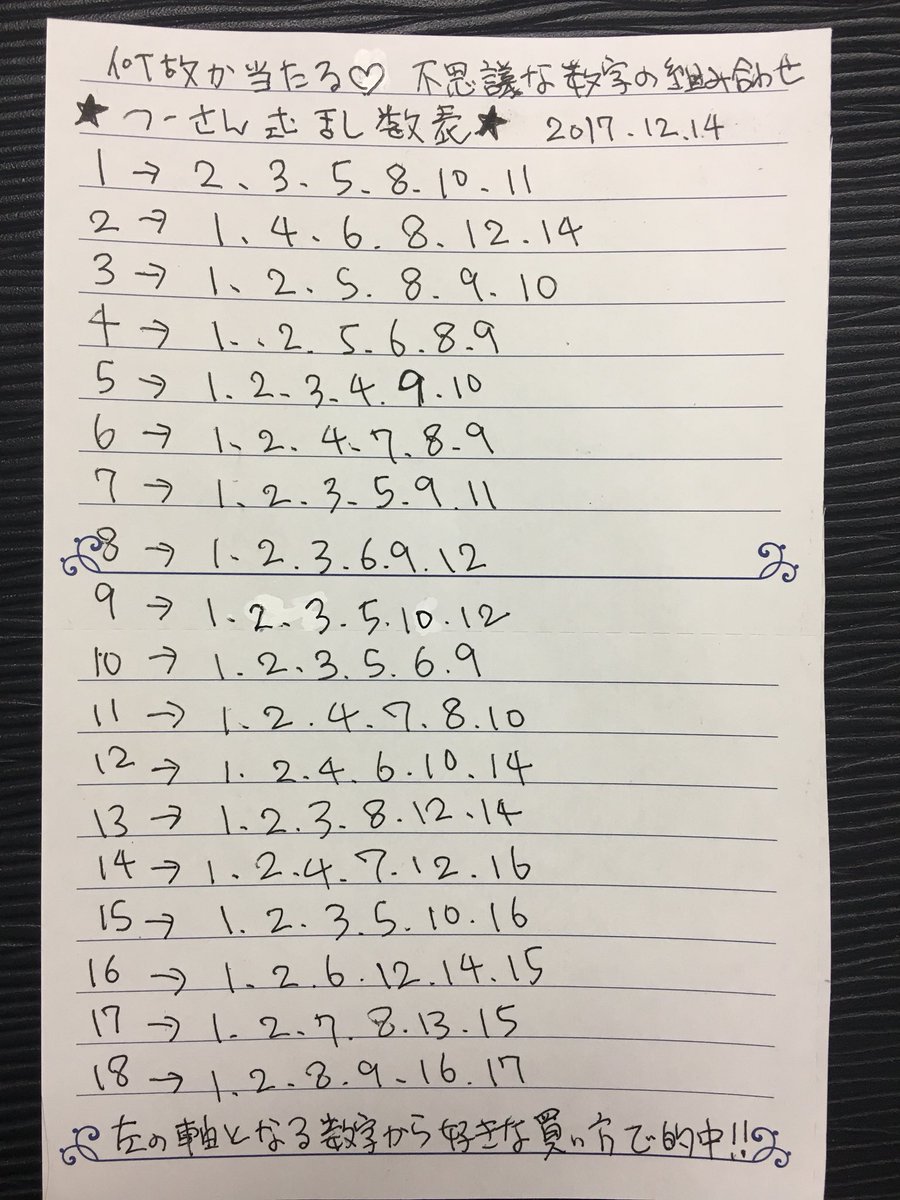 何故か当たる♡ 不思議な数字の組み合わせ
★つーさん式まし数表★ 2017.12.14
1→2、3.5.8.10.11
2→1.4.6.8.12.14
3→1.2.5.8.9.10
4→1.2.5.6.8.9
5→1.2.3.4.9.10
6→1.2.4.7.8.9
7→1.2.3.5.9.11
8→1.2.3.6.9.12
9→1.2.3.5.10.12
10→1.2.3.5.6.9
11→1.2.4.7.8.10
12→1.2.4.6.10.14
13→1.2.3.8.12.14
14→1.2.4.7.12.16
15→1.2.3.5.10.16
16→1.2.6.12.14.15
17→1.2.7.8.13.15
18→1.2.8.9.16.17
左の軸となる数字から好きな買い方で的中!!